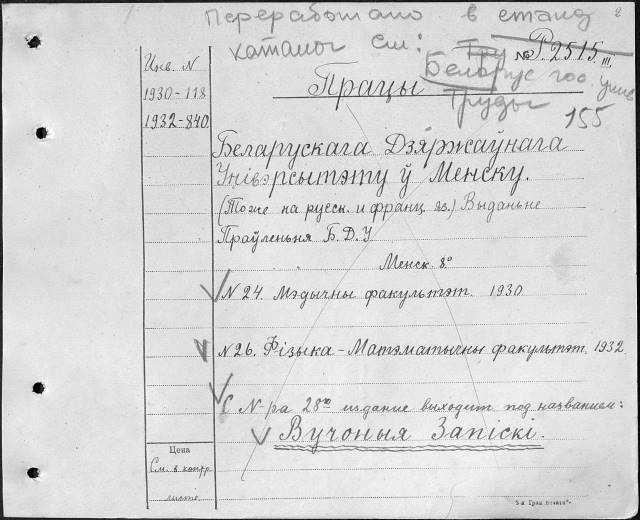 Переработано в станд 2
каталог см: Тру № Р.2515.III.
Белорус гос. унив
Працы
Труды
155
Инв. N
1930-118
1932-840.
Беларускага Дзяржаўнага
Унівэрсытэту ў Менску.
(Тоже на русск. и франц. яз.) Выданьне
Праўленьня Б.Д.У
Менск. 8.°
N 24. Мэдычны факультэт. 1930.
N 26. Фізыка-Матэматычны факультэт. 1932.
С N-ра 28го издание выходит под названием:
Вучоныя Запіскі.
Цена
См. в контр.
листке.